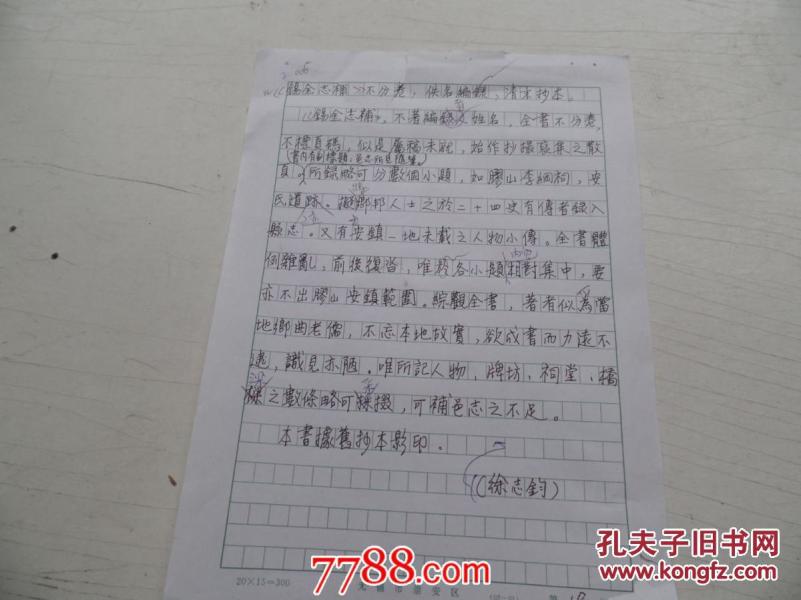 《錫金志補》不分卷，佚名編，清末抄本。
《錫金志補》，不著編者姓名，全書不分卷，
不標頁碼，似是屬稿未就，始作抄撮裒集之散
(書內有副標題，
頁。所錄略可分數個小題，如膠山李綱祠，安
氏遺跡。鄉邦人士之於二十四史有傳者錄入
縣志。又有安鎮一地未載之人物小傳。全書體
例雜亂，前後復沓，唯各小題內容相對集中，要
亦不出膠山安鎮範圍。綜觀全書，著者似為當
地鄉曲老儒，不忘本地故實，欲成書而力遠不
逮，識見亦陋。唯所記人物、牌坊、祠堂、橋
樑之數條略可採掇，可補邑志之不足。
本書據舊抄本影印。
(徐志鈞)
20×15=300
无锡市崇安区
第
7788.com
孔夫子旧书网
www.kongfz.com